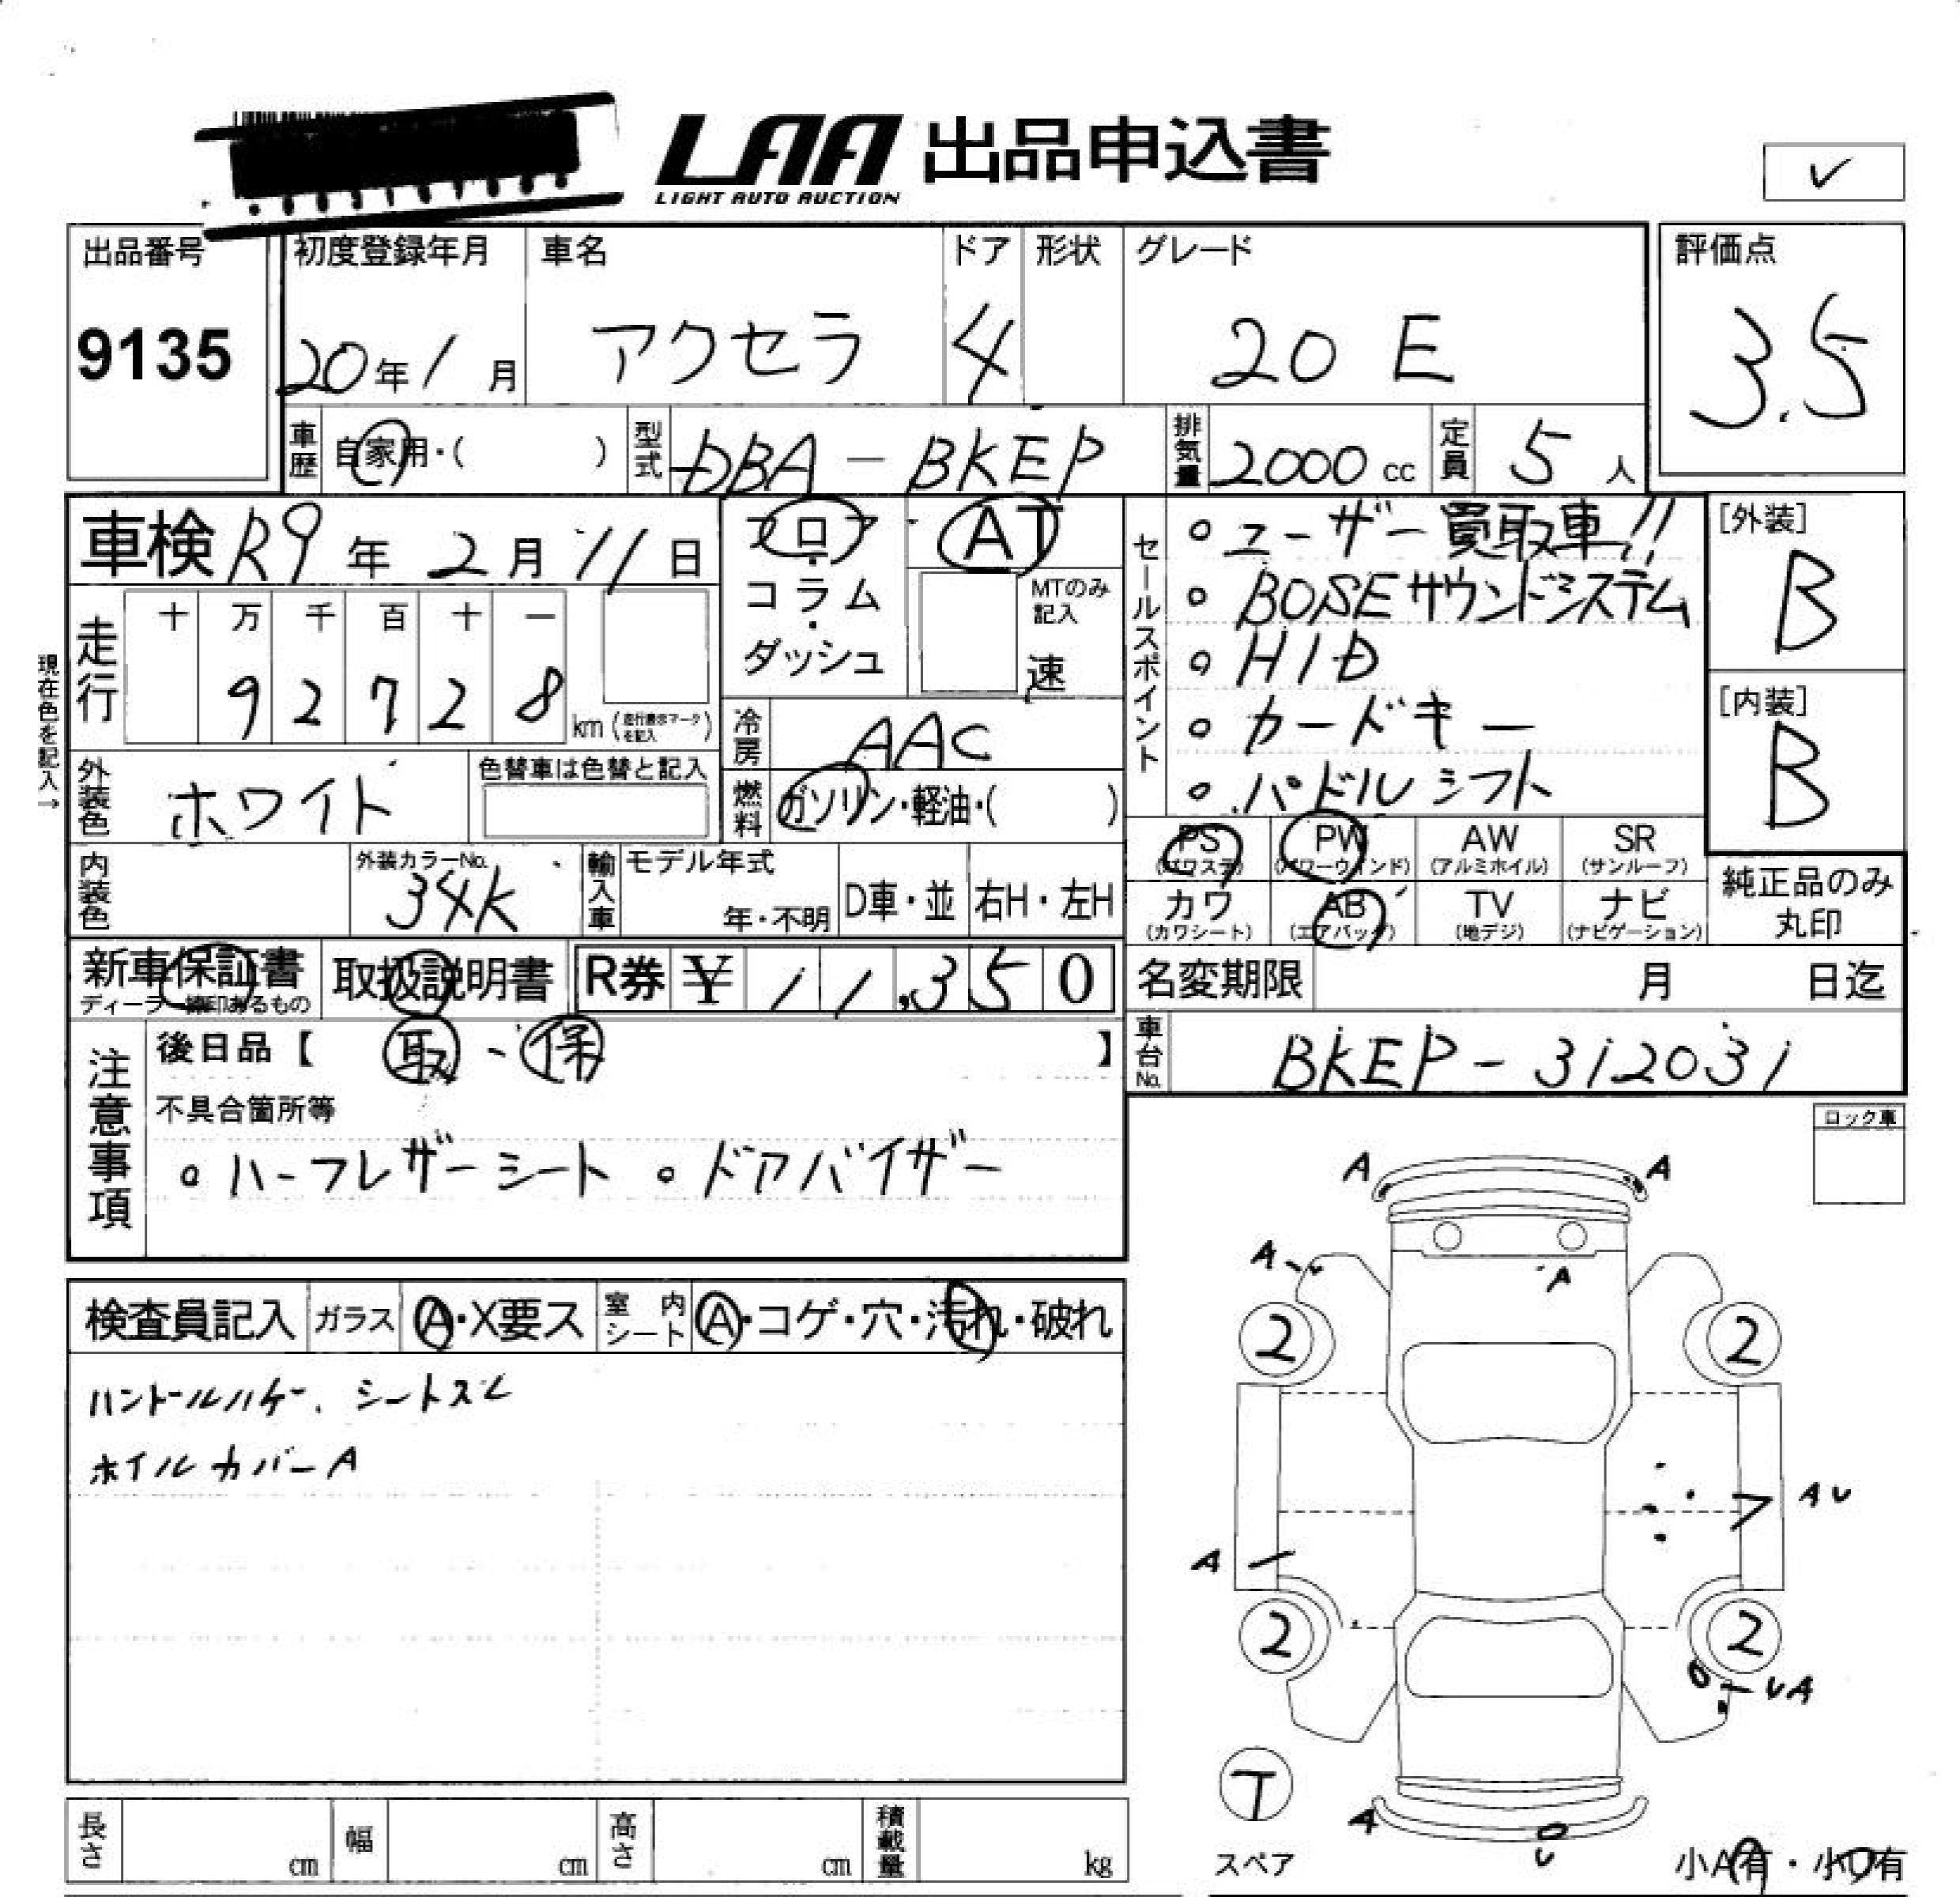 LAA 出品申込書
LIGHT AUTO AUCTION
✓
出品番号 初度登録年月 車名 ドア 形状 グレード 評価点
9135 20年1月 アクセラ 4 20 E 3.5
車歴 自家用・( ) 型式 DBA-BKEP 排気量 2000 cc 定員 5 人
車検 R9年 2月 11日
フロア・コラム・ダッシュ
AT
MTのみ記入
速
現在色を記入→
走行 十 万 千 百 十 一
9 2 7 2 8 km (走行表示マークを記入)
冷房 AAC
外装色 ホワイト 色替車は色替と記入
燃料 ガソリン・軽油・( )
内装色 外装カラーNo. 34K 輸入車 モデル年式 年・不明 D車・並 右H・左H
セールスポイント
○ユーザー買取車!!
○BOSEサウンドシステム
○HID
○カードキー
○パドルシフト
[外装]
B
[内装]
B
PS PW AW SR
(パワステ) (パワーウインド) (アルミホイル) (サンルーフ)
カワ AB TV ナビ
(カワシート) (エアバッグ) (地デジ) (ナビゲーション)
純正品のみ
丸印
新車保証書 取扱説明書 R券 ¥ 11,350
ディーラー捺印あるもの
名変期限 月 日迄
車台No. BKEP-312031
注意事項
後日品【 取、保 】
不具合箇所等
○ハーフレザーシート ○ドアバイザー
検査員記入 ガラス A・X要ス 室内シート A・コゲ・穴・汚れ・破れ
ハンドルハゲ、シートスレ
ホイルカバーA
ロック車
A A
A
A
2 2
AU
A
2 2
UA
T
スペア
A
U
小A有・小U有
長さ cm 幅 cm 高さ cm 積載量 kg